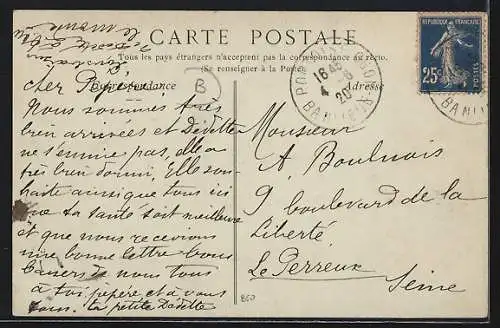 CARTE POSTALE
Tous les pays étrangers n'acceptent pas la correspondance au recto.
(Se renseigner à la Poste)
Correspondance
Adresse
B
RÉPUBLIQUE FRANÇAISE
25c
POSTES
16
4
20
BANLIEUE
BANLIEUE
cher Pépère
Nous sommes très
bien arrivées et Dédette
ne s'ennuie pas, elle a
très bien dormi, Elle sou-
haite aussi que tous ici
que ta santé soit meilleure
et que nous recevions
une bonne lettre bons
baisers de nous tous
à toi pépère et à vous
tous. ta petite Dédette
Monsieur
A. Boulnois
9 boulevard de la
Liberté
Le Perreux
Seine
850